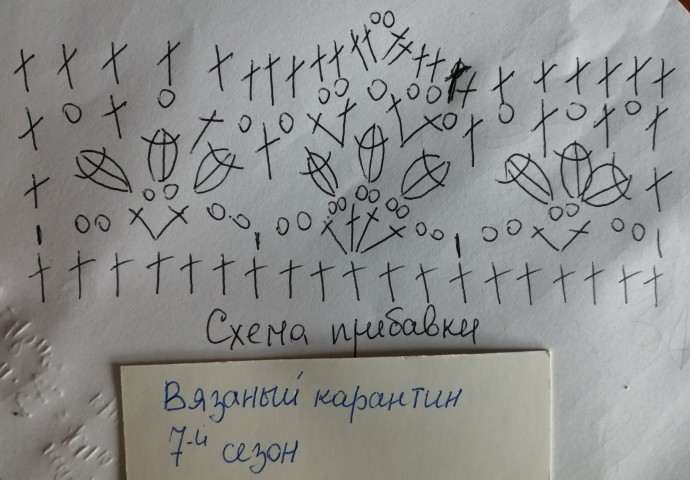 Схема прибавки
Вязаный карантин
7-й сезон